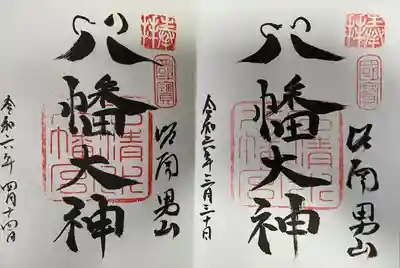 奉拝
國寶
洛南男山
八幡大神
石清水八幡宮
令和六年 四月十四日
奉拝
國寶
洛南男山
八幡大神
石清水八幡宮
令和六年三月三十日